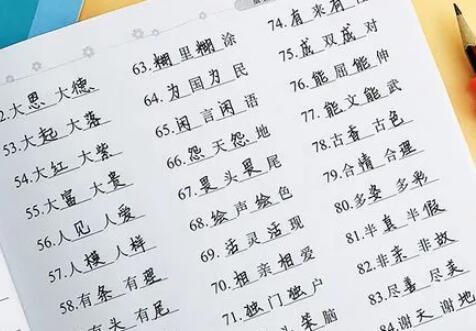 大恩 大德
53.大起 大落
54.大红 大紫
55.大富 大贵
56.人见 人爱
57.人模 人样
58.有条 有理
有头 有尾
63.糊里糊涂
64.为国为民
65.闲言闲语
66.怨天怨地
67.畏头畏尾
68.绘声绘色
69.活灵活现
70.相亲相爱
71.独门独户
笑脑
74.有来有
75.成双成对
76.能屈能伸
77.能文能武
78.古香古色
79.合情合理
80.多姿多彩
81.半真半假
82.非亲非故
83.尽善尽美
84.谢天谢地